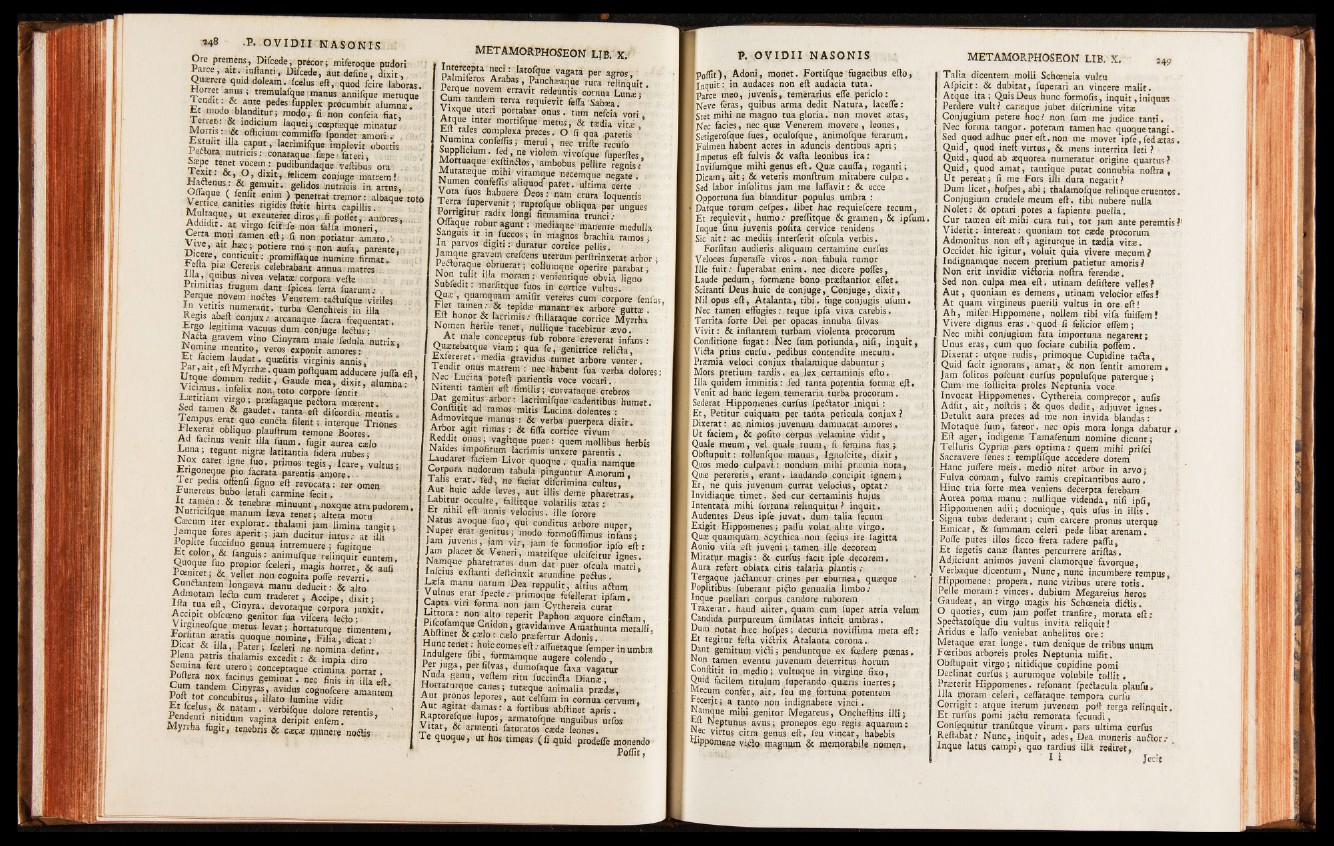 248 P. OVIDII NASONIS
Ore premens, Discede, precor; miseroque pudori
Parce, ait. instanti, Discede, aut desine, dixit,
Quærere quid doleam. scelus est, quod scire laboras.
Horret anus; tremulasque manus annisque metuque
Tendit: & ante pedes supplex procumbit alumnæ.
Et modo blanditur; modo, si non conscia fiat,
Terret: & indicium laquei, cœptæque minatur
Mortis: & officium commisso spondet amori.
Extulit illa caput, lacrimisque implevit obortis
Pectora nutricis: conataque sæpe fateri,
Sæpe tenet vocem: pudibundaque vestibus ora
Texit: &, O, dixit, felicem conjuge matrem!
Hactenus: & gemuit. gelidos nutricis in artus,
Ossaque (sensit enim) penetrat tremor: albaque toto
Vertice canities rigidis stetit hirta capillis.
Multaque, ut excuteret diros, si posset, amores,
Addidit. at virgo scit se non falsa moneri,
Certa mori tamen est; si non potiatur amato.
Vive, ait hæc; potiere tuo; non ausa, parente,
Dicere, conticuit: promissaque numine firmat.
Festa piæ Cereris celebrabant annua matres
Illa, quibus nivea velatæ corpora veste
Primitias frugum dant spicea serta suarum:
Perque novem noctes Venerem tactusque viriles
In vetitis numerant. turba Cenchreis in illa
Regis abest conjux: arcanaque sacra frequentat.
Ergo legitima vacuus dum conjuge lectus;
Nacta gravem vino Cinyram male sedula nutrix,
Nomine mentito, veros exponit amores:
Et faciem laudat. quæsitis virginis annis,
Par, ait, est Myrrhæ. quam postquam adducere jussa est,
Utque domum rediit, Gaude mea, dixit, alumna:
Vicimus. infelix non toto corpore sentit
Lætitiam virgo; præsagaque pectora mœrent.
Sed tamen & gaudet. tanta est discordia mentis.
Tempus erat quo cuncta silent; interque Triones
Flexerat obliquo plaustrum temone Bootes.
Ad facinus venit illa suum. fugit aurea cælo
Luna; tegunt nigræ latitantia sidera nubes;
Nox caret igne suo. primos tegis, Icare, vultus;
Erigoneque pio sacrata parentis amore.
Ter pedis offensi signo est revocata: ter omen
Funereus bubo letali carmine fecit.
It tamen: & tenebræ minuunt, noxque atra pudorem.
Nutricisque manum læva tenet; altera motu
Cæcum iter explorat. thalami jam limina tangit;
Jamque fores aperit; jam ducitur intus: at illi
Poplite succiduo genua intremuere; fugitque
Et color, & sanguis: animusque relinquit euntem.
Quoque suo propior sceleri, magis horret, & ausi
Pœnitet; & vellet non cognita posse reverti.
Cunctantem longæva manu deducit: & alto
Admotam lecto cum traderet, Accipe, dixit;
Ista tua est, Cinyra. devotaque corpora junxit.
Accipit obscœno genitor sua viscera lecto:
Virgineosque metus levat; hortaturque timentem.
Forsitan ætatis quoque nomine, Filia, dicat:
Dicat & illa, Pater; sceleri ne nomina desint.
Plena patris thalamis excedit: & impia diro
Semina fert utero; conceptaque crimina portat.
Postera nox facinus geminat. nec finis in illa est.
Cum tandem Cinyras, avidus cognoscere amantem
Post tot concubitus, illato lumine vidit
Et scelus, & natam. verbisque dolore retentis,
Pendenti nitidum vagina deripit ensem.
Myrrha fugit, tenebris & cæcæ munere noctis
METAMORPHOSEON LIB. X.
Intercepta neci: latosque vagata per agros,
Palmiferos Arabas, Panchæaque rura relinquit.
Perque novem erravit redeuntis cornua Lunæ;
Cum tandem terra requievit fessa Sabæa.
Vixque uteri portabat onus. tum nescia voti,
Atque inter mortisque metus, & tædia vitæ,
Est tales complexa preces. O si qua patetis
Numina confessis; merui, nec triste recuso
Supplicium. sed, ne violem vivosque superstes,
Mortuaque exstinctos, ambobus pellite regnis:
Mutatæque mihi vitamque necemque negate.
Numen confessis aliquod patet. ultima certe
Vota suos habuere Deos: nam crura loquentis
Terra supervenit; ruptosque obliqua per ungues
Porrigitur radix longi firmamina trunci:
Ossaque robur agunt: mediaque manente medulla
Sanguis it in succos; in magnos brachia ramos;
In parvos digiti: duratur cortice pellis.
Jamque gravem crescens uterum perstrinxerat arbor;
Pectoraque obruerat; collumque operire parabat;
Non tulit illa moram: venientique obvia ligno
Subsedit: mersitque suos in cortice vultus.
Quæ, quamquam amisit veteres cum corpore sensus,
Flet tamen: & tepidæ manant ex arbore guttæ.
Est honor & lacrimis: stillataque cortice Myrrha
Nomen herile tenet, nullique tacebitur ævo.
At male conceptus sub robore creverat infans:
Quærebatque viam; qua se, genitrice relicta,
Exsereret. media gravidus tumet arbore venter.
Tendit onus matrem: nec habent sua verba dolores:
Nec Lucina potest parientis voce vocari.
Nitenti tamen est similis; curvataque crebros
Dat gemitus arbor: lacrimisque cadentibus humet.
Constitit ad ramos mitis Lucina dolentes:
Admovitque manus: & verba puerpera dixit.
Arbor agit rimas: & fissa cortice vivum
Reddit onus; vagitque puer: quem mollibus herbis
Naides impositum lacrimis unxere parentis.
Laudaret faciem Livor quoque. qualia namque
Corpora nudorum tabula pinguntur Amorum,
Talis erat. sed, ne faciat discrimina cultus,
Aut huic adde leves, aut illis deme pharetras.
Labitur occulte, fallitque volatilis ætas:
Et nihil est annis velocius. ille sorore
Natus avoque suo, qui conditus arbore nuper,
Nuper erat genitus; modo formosissimus infans;
Jam juvenis, jam vir, jam se formosior ipso est:
Jam placet & Veneri, matrisque ulciscitur ignes.
Namque pharetratus dum dat puer oscula matri,
Inscius exstanti destrinxit arundine pectus.
Læsa manu natum Dea reppulit, altius actum
Vulnus erat specie: primoque fefellerat ipsam.
Capta viri forma non jam Cythereia curat
Littora: non alto repetit Paphon æquore cinctam,
Piscosamque Gnidon, gravidamve Amathunta metalli,
Abstinet & cælo: cælo præfertur Adonis.
Hunc tenet: huic comes est: assuetaque semper in umbra
Indulgere sibi, formamque augere colendo,
Per juga, per silvas, dumosaque saxa vagatur
Nuda genu, vestem ritu succincta Dianæ,
Hortaturque canes; tutæque animalia prædæ,
Aut pronos lepores, aut celsum in cornua cervum,
Aut agitat damas: a fortibus abstinet apris.
Raptoresque lupos, armatosque unguibus ursos
Vitat, & armenti saturatos cæde leones.
Te quoque, ut hos timeas (si quid prodesse monendo
Possit,
P. OVIDII NASONIS
Possit), Adoni, monet. Fortisque fugacibus esto,
Inquit: in audaces non est audacia tuta.
Parce meo, juvenis, temerarius esse periclo:
Neve feras, quibus arma dedit Natura, lacesse:
Stet mihi ne magno tua gloria. non movet ætas,
Nec facies, nec quæ Venerem movere, leones,
Setigerosque sues, oculosque, animosque ferarum.
Fulmen habent acres in aduncis dentibus apri;
Impetus est fulvis & vasta leonibus ira:
Invisumque mihi genus est. Quæ caussa, roganti;
Dicam, ait; & veteris monstrum mirabere culpæ.
Sed labor insolitus jam me lassavit: & ecce
Opportuna sua blanditur populus umbra:
Datque torum cespes. libet hac requiescere tecum,
Et requievit, humo: pressitque & gramen, & ipsum.
Inque sinu juvenis posita cervice renidens
Sic ait: ac mediis interserit oscula verbis.
Forsitan audieris aliquam certamine cursus
Veloces superasse viros. non fabula rumor
Ille fuit: superabat enim. nec dicere posses,
Laude pedum, formæne bono præstantior esset.
Scitanti Deus huic de conjuge, Conjuge, dixit,
Nil opus est, Atalanta, tibi. fuge conjugis usum.
Nec tamen effugies: teque ipsa viva carebis.
Territa sorte Dei per opacas innuba silvas
Vivit: & instantem turbam violenta procorum
Conditione fugat: Nec sum potiunda, nisi, inquit,
Victa prius cursu. pedibus contendite mecum.
Præmia veloci conjux thalamique dabuntur;
Mors pretium tardis. ea lex certaminis esto.
Illa quidem immitis: sed tanta potentia formæ est.
Venit ad hanc legem temeraria turba procorum.
Sederat Hippomenes cursus spectator iniqui:
Et, Petitur cuiquam per tanta pericula conjux?
Dixerat: ac nimios juvenum damnarat amores.
Ut faciem, & posito corpus velamine vidit,
Quale meum, vel quale tuum, si femina fias;
Obstupuit: tollensque manus, Ignoscite, dixit,
Quos modo culpavi: nondum mihi præmia nota,
Quæ peteretis, erant. laudando concipit ignem;
Et, ne quis juvenum currat velocius, optat:
Invidiaque timet. Sed cur certaminis hujus
Intentata mihi fortuna relinquitur? inquit.
Audentes Deus ipse juvat. dum talia secum
Exigit Hippomenes; passu volat alite virgo.
Quæ quamquam Scythica non secius ire sagitta
Aonio visa est juveni; tamen ille decorem
Miratur magis: & cursus facit ipse decorem.
Aura refert oblata citis talaria plantis:
Tergaque jactantur crines per eburnea, quæque
Poplitibus suberant picto genualia limbo:
Inque puellari corpus candore ruborem
Traxerat. haud aliter, quam cum super atria velum
Candida purpureum simulatas inficit umbras.
Dum notat hæc hospes; decursa novissima meta est:
Et tegitur festa victrix Atalanta corona.
Dant gemitum victi; penduntque ex fœdere pœnas.
Non tamen eventu juvenum deterritus horum
Constitit in medio; vultuque in virgine fixo,
Quid facilem titulum superando quæris inertes;
Mecum confer, ait. seu me fortuna potentem
Fecerit; a tanto non indignabere vinci.
Namque mihi genitor Megareus, Onchestius illi;
Est Neptunus avus; pronepos ego regis aquarum:
Nec virtus citra genus est. seu vincar, habebis
Hippomene victo magnum & memorabile nomen.
METAMORPHOSEON LIB. X. 249
Talia dicentem molli Schœneia vultu
Aspicit: & dubitat, superari an vincere malit.
Atque ita; Quis Deus hunc formosis, inquit, iniquus
Perdere vult? caræque jubet discrimine vitæ
Conjugium petere hoc? non sum me judice tanti.
Nec forma tangor. poteram tamen hac quoque tangi.
Sed quod adhuc puer est. non me movet ipse, sed ætas.
Quid, quod inest virtus, & mens interrita leti?
Quid, quod ab æquorea numeratur origine quartus?
Quid, quod amat, tantique putat connubia nostra,
Ut pereat; si me Fors illi dura negarit?
Dum licet, hospes, abi; thalamosque relinque cruentos.
Conjugium crudele meum est. tibi nubere nulla
Nolet: & optari potes a sapiente puella.
Cur tamen est mihi cura tui, tot jam ante peremtis?
Viderit: intereat: quoniam tot cæde procorum
Admonitus non est; agiturque in tædia vitæ.
Occidet hic igitur, voluit quia vivere mecum?
Indignamque necem pretium patietur amoris?
Non erit invidiæ victoria nostra ferendæ.
Sed non culpa mea est. utinam desistere velles?
Aut, quoniam es demens, utinam velocior esses!
At quam virgineus puerili vultus in ore est!
Ah, miser Hippomene, nollem tibi visa fuissem!
Vivere dignus eras. quod si felicior essem;
Nec mihi conjugium fata importuna negarent;
Unus eras, cum quo sociare cubilia possem.
Dixerat: utque rudis, primoque Cupidine tacta,
Quid facit ignorans, amat, & non sentit amorem.
Jam solitos poscunt cursus populusque paterque;
Cum me sollicita proles Neptunia voce
Invocat Hippomenes. Cythereia comprecor, ausis
Adsit, ait, nostris; & quos dedit, adjuvet ignes.
Detulit aura preces ad me non invida blandas:
Motaque sum, fateor. nec opis mora longa dabatur.
Est ager, indigenæ Tamasenum nomine dicunt;
Telluris Cypriæ pars optima: quem mihi prisci
Sacravere senes: templisque accedere dotem
Hanc jussere meis. medio nitet arbor in arvo;
Fulva comam, fulvo ramis crepitantibus auro.
Hinc tria forte mea veniens decerpta ferebam
Aurea poma manu: nullique videnda, nisi ipsi,
Hippomenen adii; docuique, quis usus in illis.
Signa tubæ dederant; cum carcere pronus uterque
Emicat, & summam celeri pede libat arenam.
Posse putes illos sicco freta radere passu,
Et segetis canæ stantes percurrere aristas.
Adjiciunt animos juveni clamorque favorque,
Verbaque dicentum, Nunc, nunc incumbere tempus,
Hippomene: propera. nunc viribus utere totis.
Pelle moram: vinces. dubium Megareius heros
Gaudeat, an virgo magis his Schœneia dictis.
O quoties, cum jam posset transire, morata est:
Spectatosque diu vultus invita reliquit!
Aridus e lasso veniebat anhelitus ore:
Metaque erat longe. tum denique de tribus unum
Fœtibus arboreis proles Neptunia misit.
Obstupuit virgo; nitidique cupidine pomi
Declinat cursus; aurumque volubile tollit.
Præterit Hippomenes. resonant spectacula plausu.
Illa moram celeri, cessataque tempora cursu
Corrigit: atque iterum juvenem post terga relinquit.
Et rursus pomi jactu remorata secundi,
Consequitur transitque virum. pars ultima cursus
Restabat: Nunc, inquit, ades, Dea muneris auctor:
Inque latus campi, quo tardius illa rediret,
I i Jecit